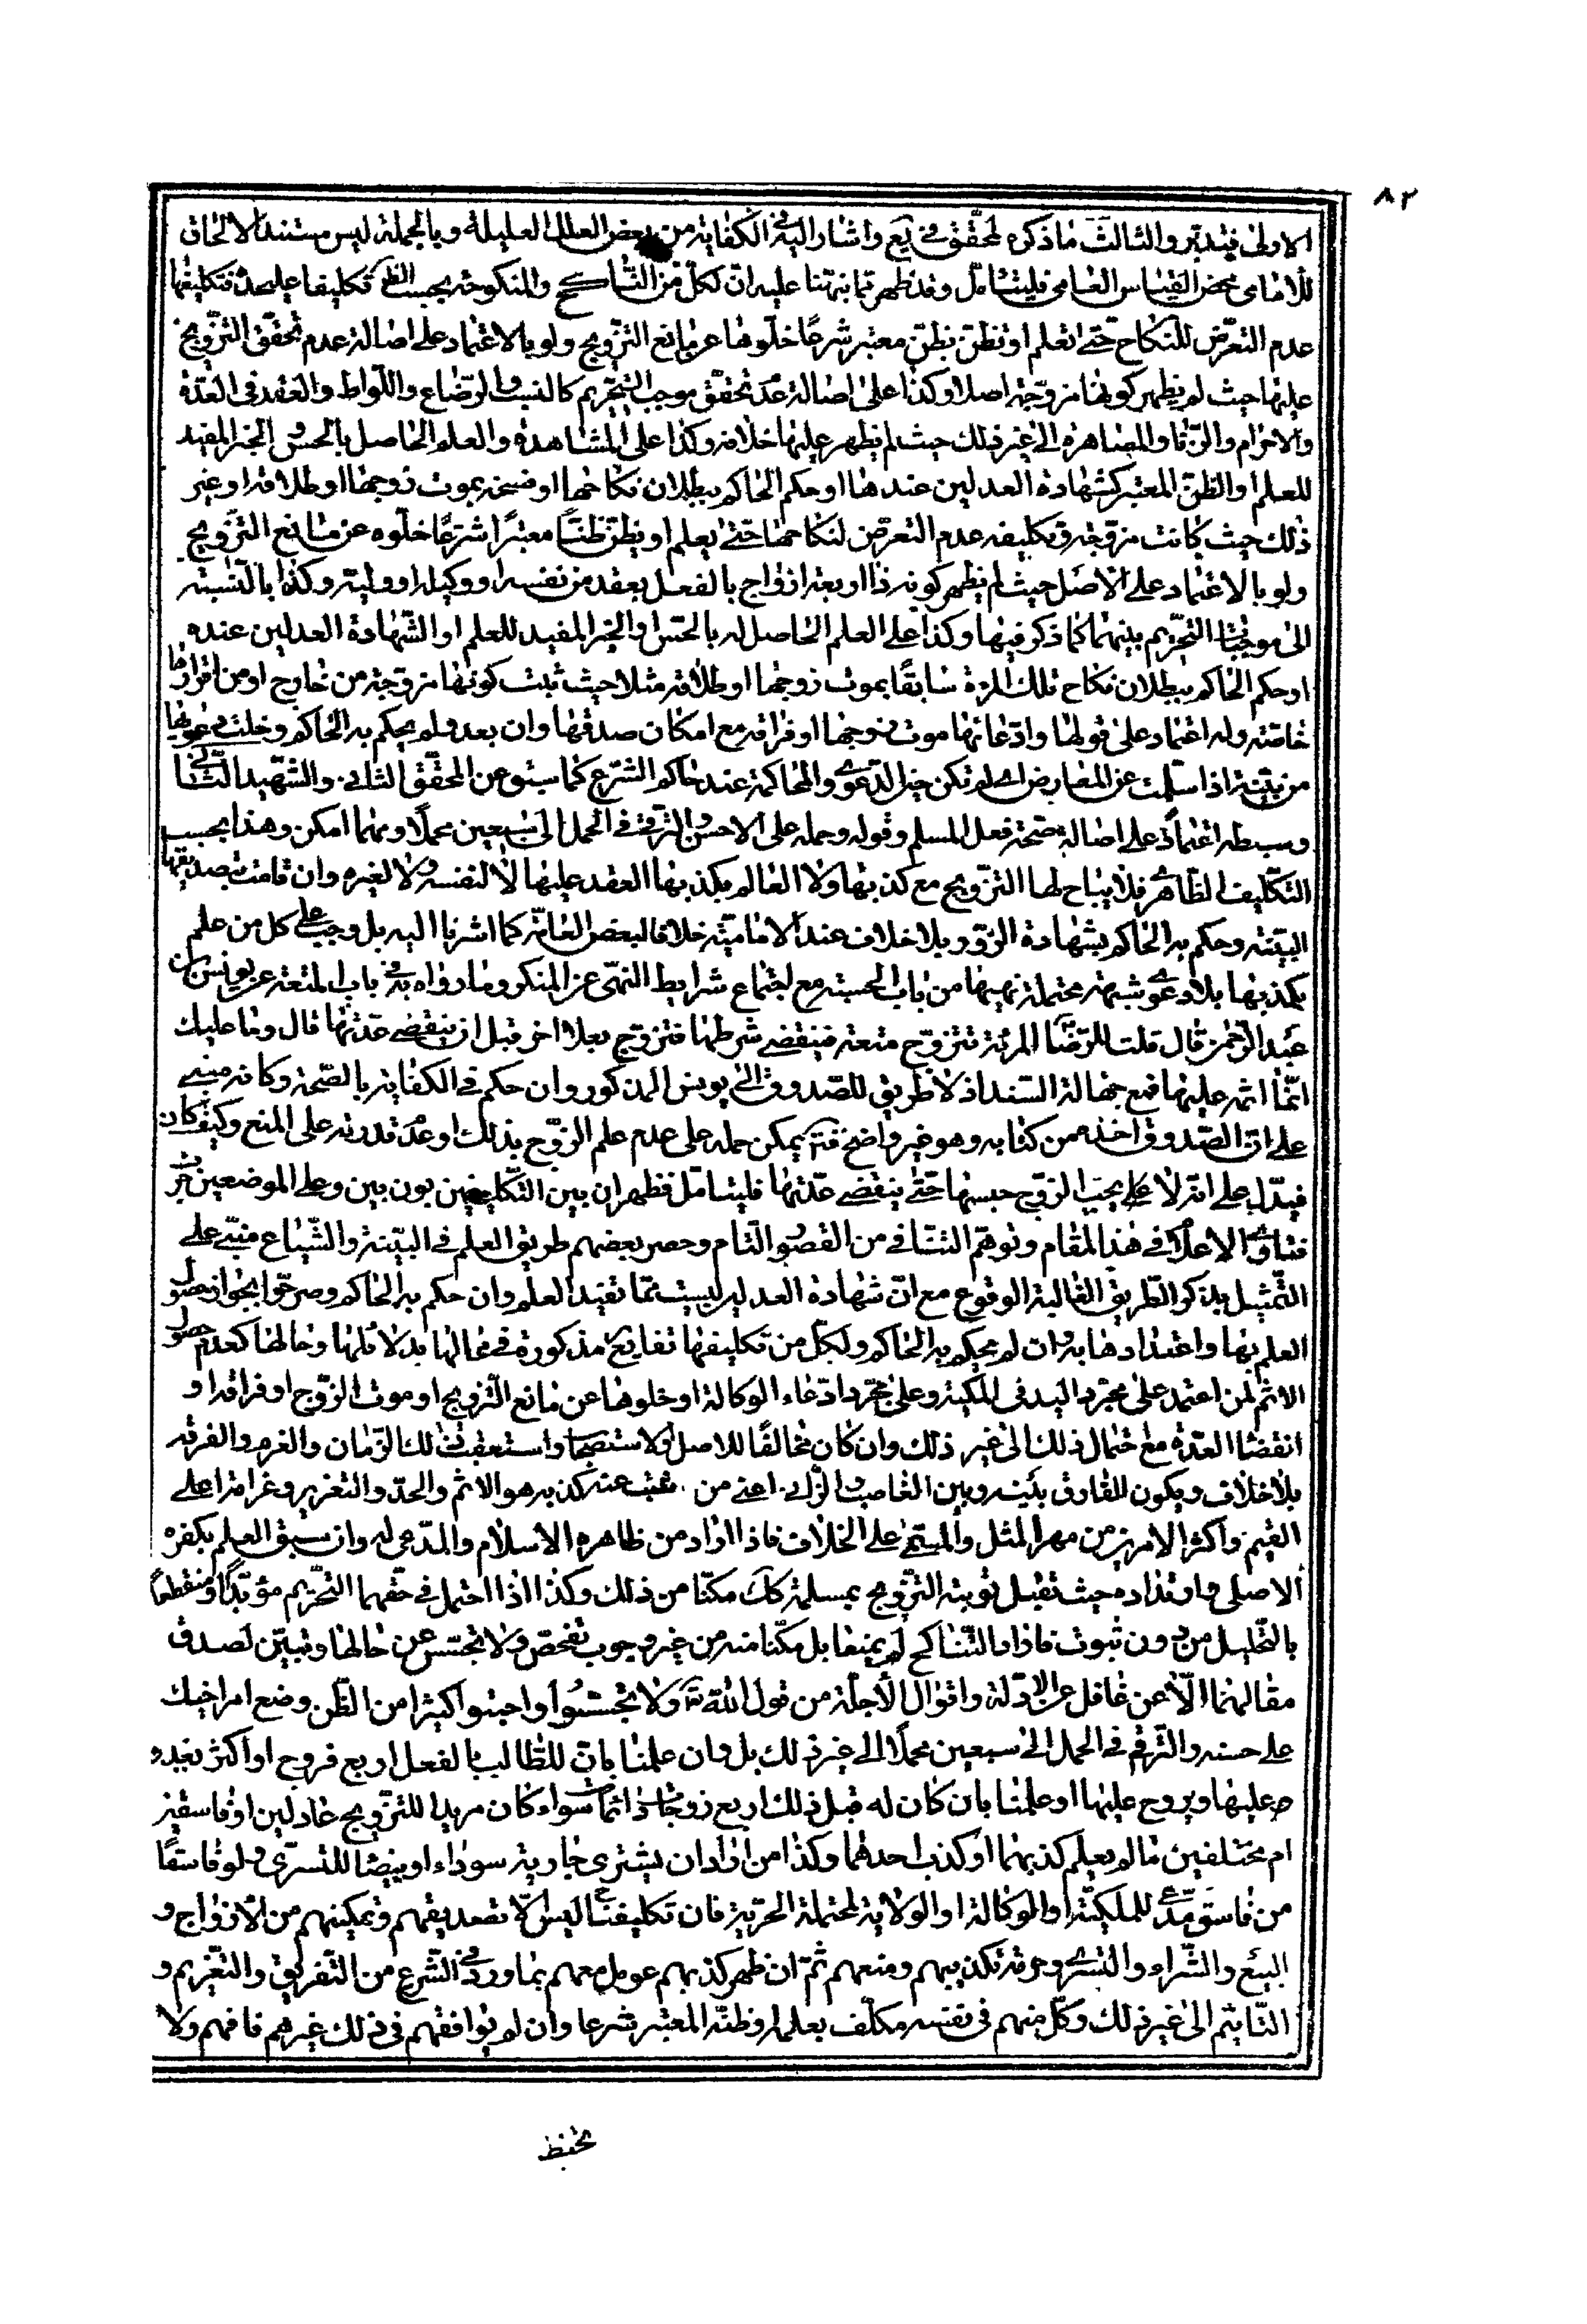 ٨٢
الاولى فتدبر والثالث ما ذكره المحقق في يع واشار اليه في الكفاية من بعض العلل العليلة وبالجملة ليس مستند الالحاق
للامامى محض القياس العامى فليتامل وقد ظهر مما نبهنا عليه ان لكل من الناكح والمنكوحة بحسب الظ تكليفا عليحدة فتكليفها
عدم التعرض للنكاح حتى تعلم او تظن بظن معتبر شرعا خلوها عن مانع التزويج ولو بالاعتماد على اصالة عدم تحقق التزويج
عليها حيث لم يظهر كونها مزوجة اصلا وكذا على اصالة عدم تحقق موجب التحريم كالنسب والرضاع واللواط والعقد فى العدة
والاحرام والزنا والمصاهرة الى غير ذلك حيث لم يظهر عليها خلافه وكذا على المشاهدة والعلم الحاصل بالحس والخبر المفيد
للعلم او الظن المعتبر كشهادة العدلين عندها او حكم الحاكم ببطلان نكاحها او فسخه بموت زوجها او طلاقه او غير
ذلك حيث كانت مزوجة وتكليفه عدم التعرض لنكاحها حتى يعلم او يظن ظنا معتبرا شرعا خلوه عن مانع التزويج
ولو بالاعتماد على الاصل حيث لم يظهر كونه ذا اربعة ازواج بالفعل بعقد من نفسه او وكيله او وليه وكذا بالنسبة
الى موجبات التحريم بينهما كما ذكر فيها وكذا على العلم الحاصل له بالحس والخبر المفيد للعلم او الشهادة العدلين عنده
او حكم الحاكم ببطلان نكاح تلك المرءة سابقا بموت زوجها او طلاقه مثلا حيث ثبت كونها مزوجة من خارج او من اقرارها
خاصة وله اعتماد على قولها وادعائها موت زوجها او فراقه مع امكان صدقها وان بعد ولم يحكم به الحاكم وخلت دعويها
من بينة اذا سلمت عن المعارض اى لم تكن حين الدعوى والمحاكمة عند حاكم الشرع كما سبق عن المحقق الثانى والشهيد الثانى
وسبطه اعتمادا على اصالة صحة فعل المسلم وقوله وحمله على الاحسن والترقى في الحمل الى سبعين محملا ومهما امكن وهذا بحسب
التكليف الظاهرى فلا يباح لها التزويج مع كذبها ولا العالم بكذبها العقد عليها لا لنفسه ولا لغيره وان قامت بتصديقها
البينة وحكم به الحاكم بشهادة الزور بلا خلاف عند الامامية خلافا لبعض العامة كما اشرنا اليه بل وجب على كل من علم
بكذبها بلا دعوى شبهة محتملة نهيها من باب الحسبة مع اجتماع شرايط النهى عن المنكر وما رواه يه في باب المتعة عن يونس بن
عبد الرحمن قال قلت للرضا المرئة تتزوج متعة فينقضى شرطها فتزوج رجلا اخر قبل ان ينقضى عدتها قال وما عليك
انما اثمه عليها فمع جهالة السند اذ لا طريق للصدوق الى يونس المذكور وان حكم في الكفاية بالصحة وكانه مبنى
على ان الصدوق اخذه من كتابه وهو غير واضح يمكن حمله على عدم علم الزوج بذلك او عدم قدرته على المنع وكيف كان
فيدل على انه لا يجب على الزوج حبسها حتى ينقضى عدتها فليتامل فظهر ان بين التكليفين بون بين وعلى الموضعين
فتاوى الاعلام في هذا المقام وتوهم التنافى من القصور التام وحصر بعضهم طريق العلم في البينة والشياع مبنى على
التمثيل بذكر الطريق الغالبة الوقوع مع ان شهادة العدلين ليست مما تفيد العلم وان حكم به الحاكم وصرحوا بجواز حصول
العلم بها واعتدادها به وان لم يحكم به الحاكم ولكل من تكليفها تفاريع مذكورة في محالها بدلائلها وحالها كعدم حصول
الاثم لمن اعتمد على مجرد اليد فى الملكية وعلى مجرد ادعاء الوكالة او خلوها عن مانع التزويج او موت الزوج او فراقه او
انقضا العدة مع احتمال ذلك الى غير ذلك وان كان مخالفا للاصل والاستصحاب واستعقب ذلك الزمان والغرم والفرقة
بلا خلاف ويكون الفارق بينه وبين الغاصب والزانى اعنى من ثبت عنده كذبه هو الاثم والحد والتعزير وغرامة اعلى
القيم واكثر الامرين من مهر المثل والمسمى على الخلاف فاذا اراد من ظاهره الاسلام والمدعى له وان سبق العلم بكفره
الاصلى وارتداده حيث تقبل توبته التزويج بمسلمة كك مكنا من ذلك وكذا اذا احتمل في حقهما التحريم مؤبدا او منقطعا
بالتحليل من دون ثبوت فاذا راما التناكح لم يمنعا بل مكنا منه من غير وجوب تفحص ولا تجسس عن حالها وتبين لصدق
مقالهما الا عن غافل عن الادلة واقوال الاجلة من قول الله تع ولا تجسسوا واجتنبوا كثيرا من الظن وضع امر اخيك
على حسنه والترقى في الحمل الى سبعين محملا الى غير ذلك بل وان علمنا بان للطالب بالفعل اربع فروج او اكثر يغدو
عليها ويروح عليها او علمنا بان كان له قبل ذلك اربع زوجات دائمات سواء كان مريدا للتزويج عادلين او فاسقين
ام مختلفين ما لم يعلم كذبهما او كذب احدهما وكذا من اراد ان يشترى جارية سوداء او بيضا للتسرى ولو فاسقا
من فاسق مدع للملكية او الوكالة او الولاية لمحتملة الحرية فان تكليفنا ليس الا تصديقهم وتمكينهم من الازواج و
البيع والشراء والتسرى وحرمة تكذيبهم ومنعهم ثم ان ظهر كذبهم عومل معهم بما ورد في الشرع من التفريق والتغريم و
التاثيم الى غير ذلك وكل منهم فى نفسه مكلف بعلمه وظنه المعتبر شرعا وان لم يوافقهم فى ذلك غيرهم فافهم ولا